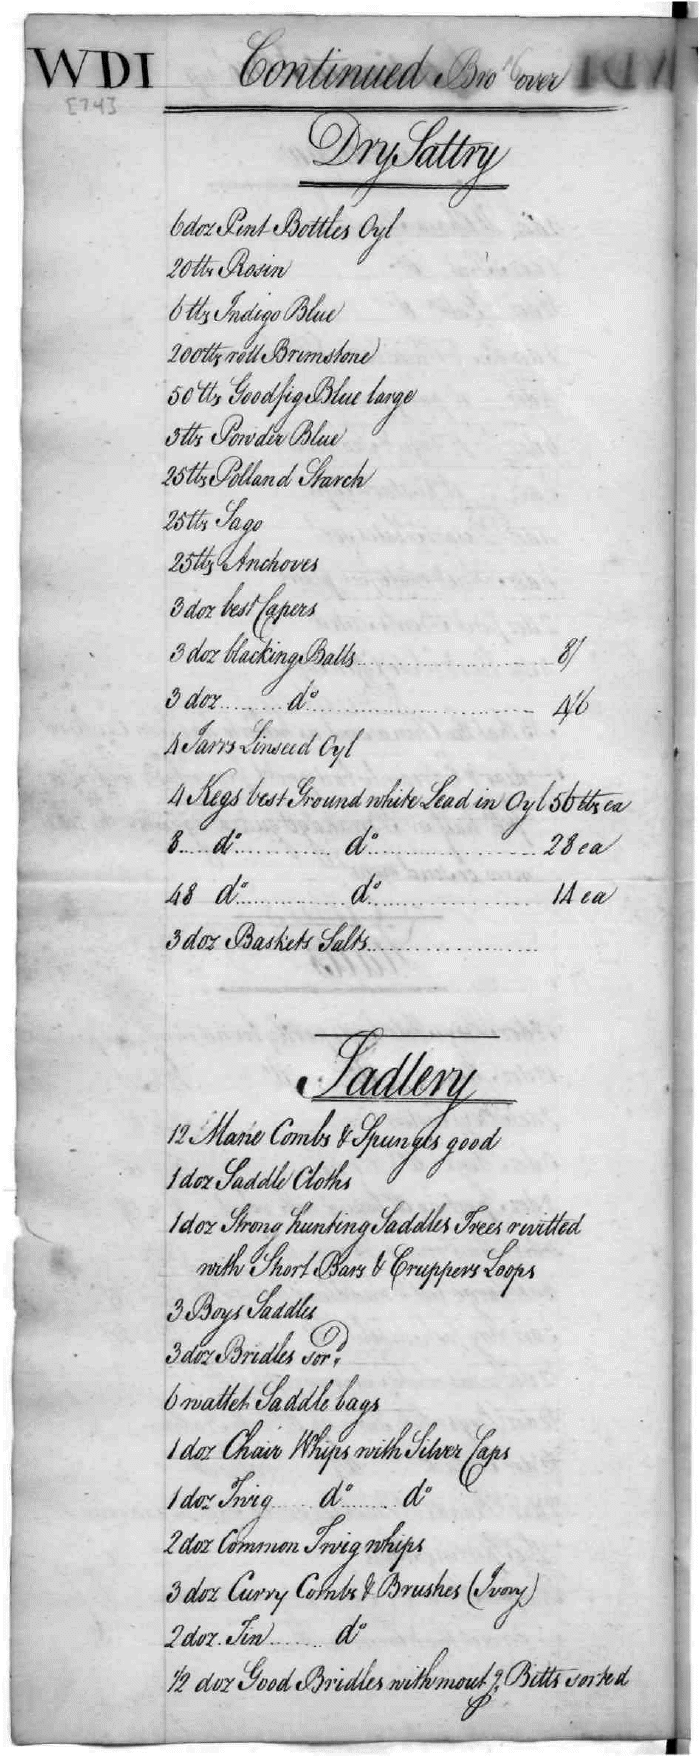 WDI Continued Bro.t over
[74]
Dry Saltry
6 doz Pint Bottles Oyl
20 lbs Rosin
6 lbs Indigo Blue
200 lbs roll Brimstone
50 lbs Good fig Blue large
3 lbs Powder Blue
25 lbs Polland Starch
25 lbs Sago
25 lbs Anchoves
3 doz best Capers
3 doz blacking Balls.......... 8/
3 doz.......... do.......... 4/6
4 Jarrs Linseed Oyl
4 Kegs best Ground white Lead in Oyl 56 lbs ea
8..... do.......... do.......... 28 ea
48 do.......... do.......... 14 ea
3 doz Baskets Salts..........
Sadlery
12 Mane Combs & Spunges good
1 doz Saddle Cloths
1 doz Strong hunting Saddles Trees rivitted
with Short Bars & Cruppers Loops
3 Boys Saddles
3 doz Bridles sord
6 wallet Saddle bags
1 doz Chair Whips with Silver Caps
1 doz Twig..... do..... do
2 doz Common Twig whips
3 doz Curry Combs & Brushes (Ivory)
2 doz. Tin....... do
1/2 doz Good Bridles with Bitts sorted